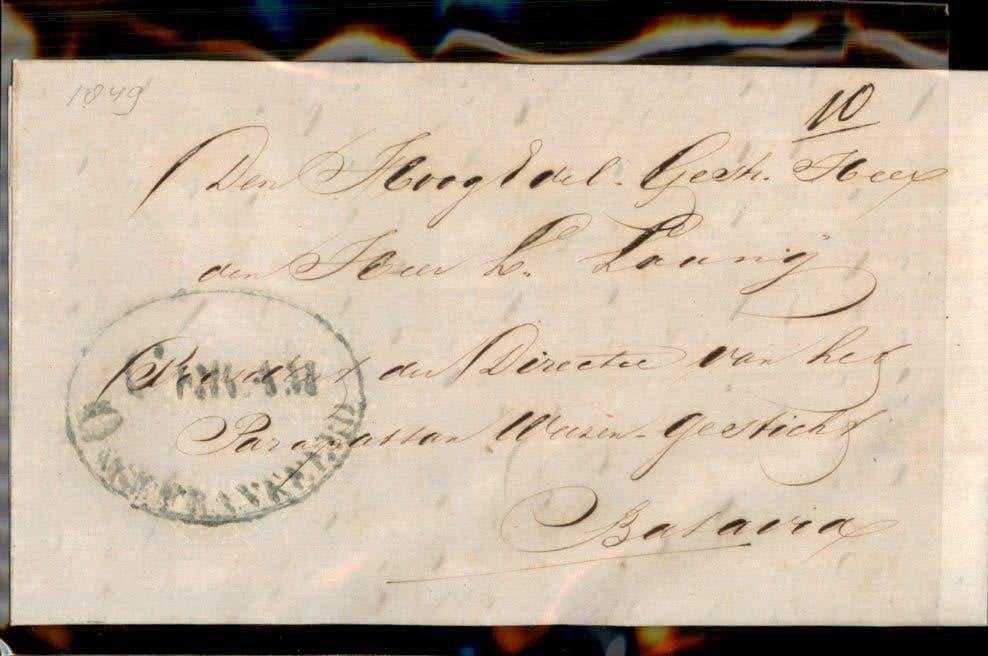 1849
10
Den HoogEdel. Gestr. Heer
den Heer L. Laung
President der Directie van het
Parapattan Weezen-Gesticht
Batavia
ONGEFRANKEERD